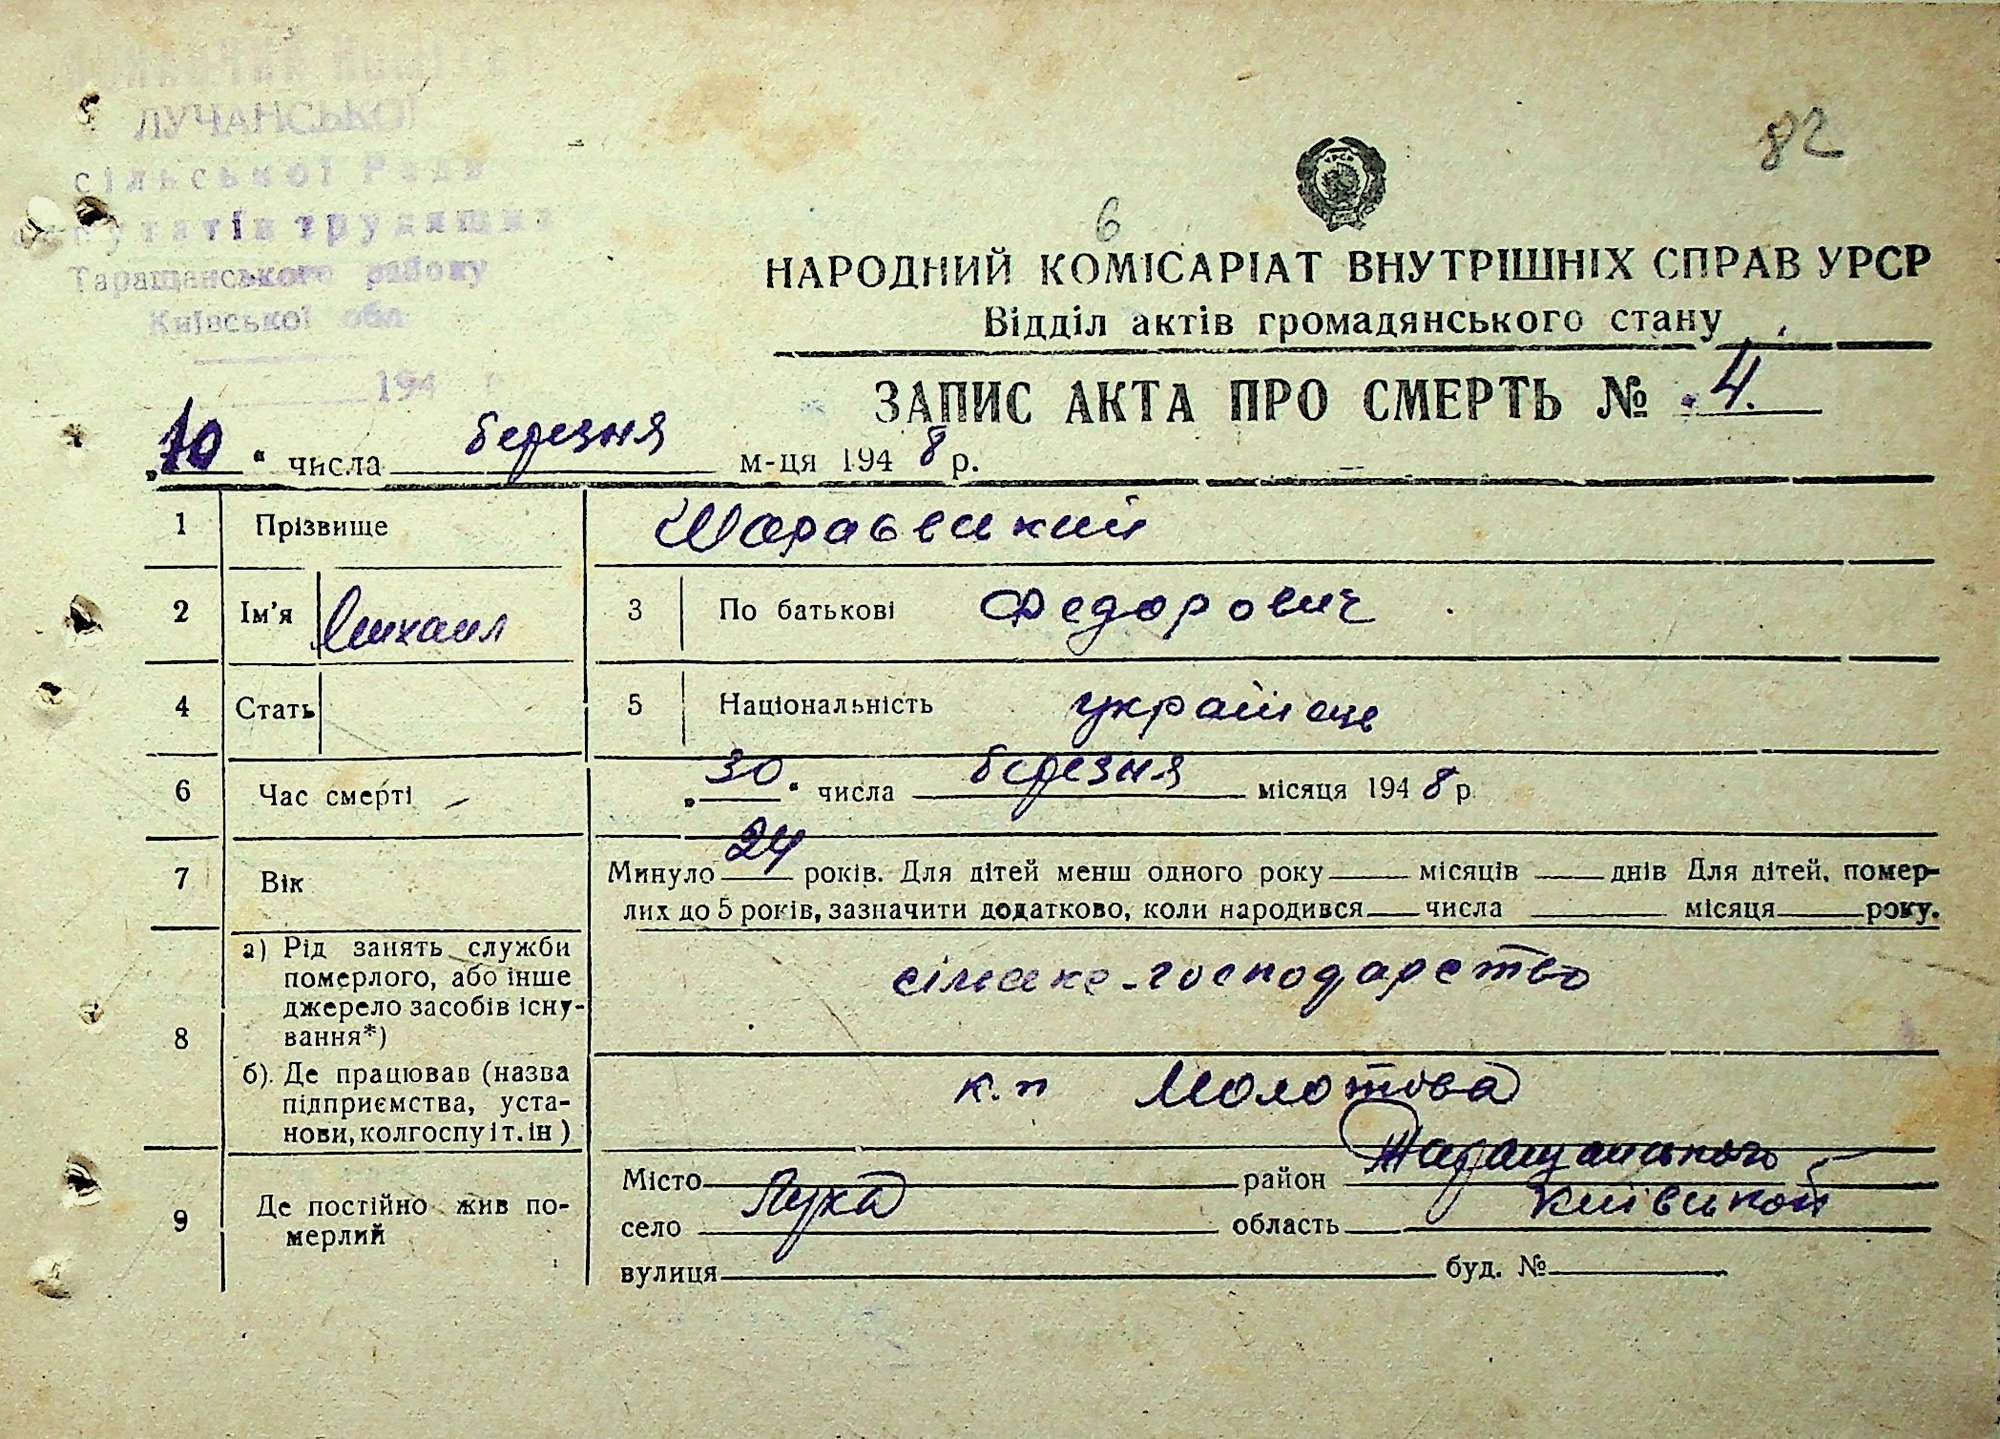 ЛУЧАНСЬКОЇ
сільської Ради
депутатів трудящих
Таращанського району
Київської обл
194 р
82
6
НАРОДНИЙ КОМІСАРІАТ ВНУТРІШНІХ СПРАВ УРСР
Відділ актів громадянського стану
ЗАПИС АКТА ПРО СМЕРТЬ № 4.
„10“ числа березня м-ця 1948 р.
1 Прізвище
2 Ім’я Михаил 3 По батькові Федорович
4 Стать 5 Національність українець
6 Час смерті „30“ числа березня місяця 1948 р
7 Вік Минуло 24 років. Для дітей менш одного року місяців днів Для дітей, помер-
лих до 5 років, зазначити додатково, коли народився числа місяця року.
8 а) Рід занять служби
померлого, або інше
джерело засобів існу-
вання*)
сільське-господарство
б). Де працював (назва
підприємства, уста-
нови, колгоспу і т. ін)
к.п Молотова
9 Де постійно жив по-
мерлий
Місто район Таращанського
село Лука область Київської
вулиця буд. №